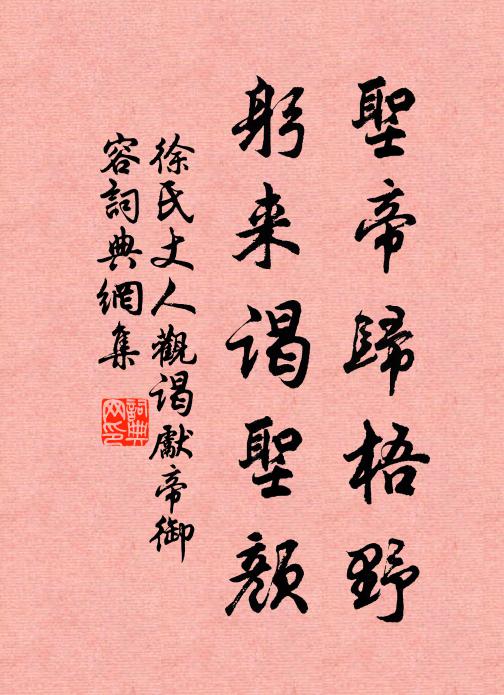 聖帝歸梧野
躬来謁聖顔
徐氏丈人觀謁獻帝御
容詞典網集
詞典
网印